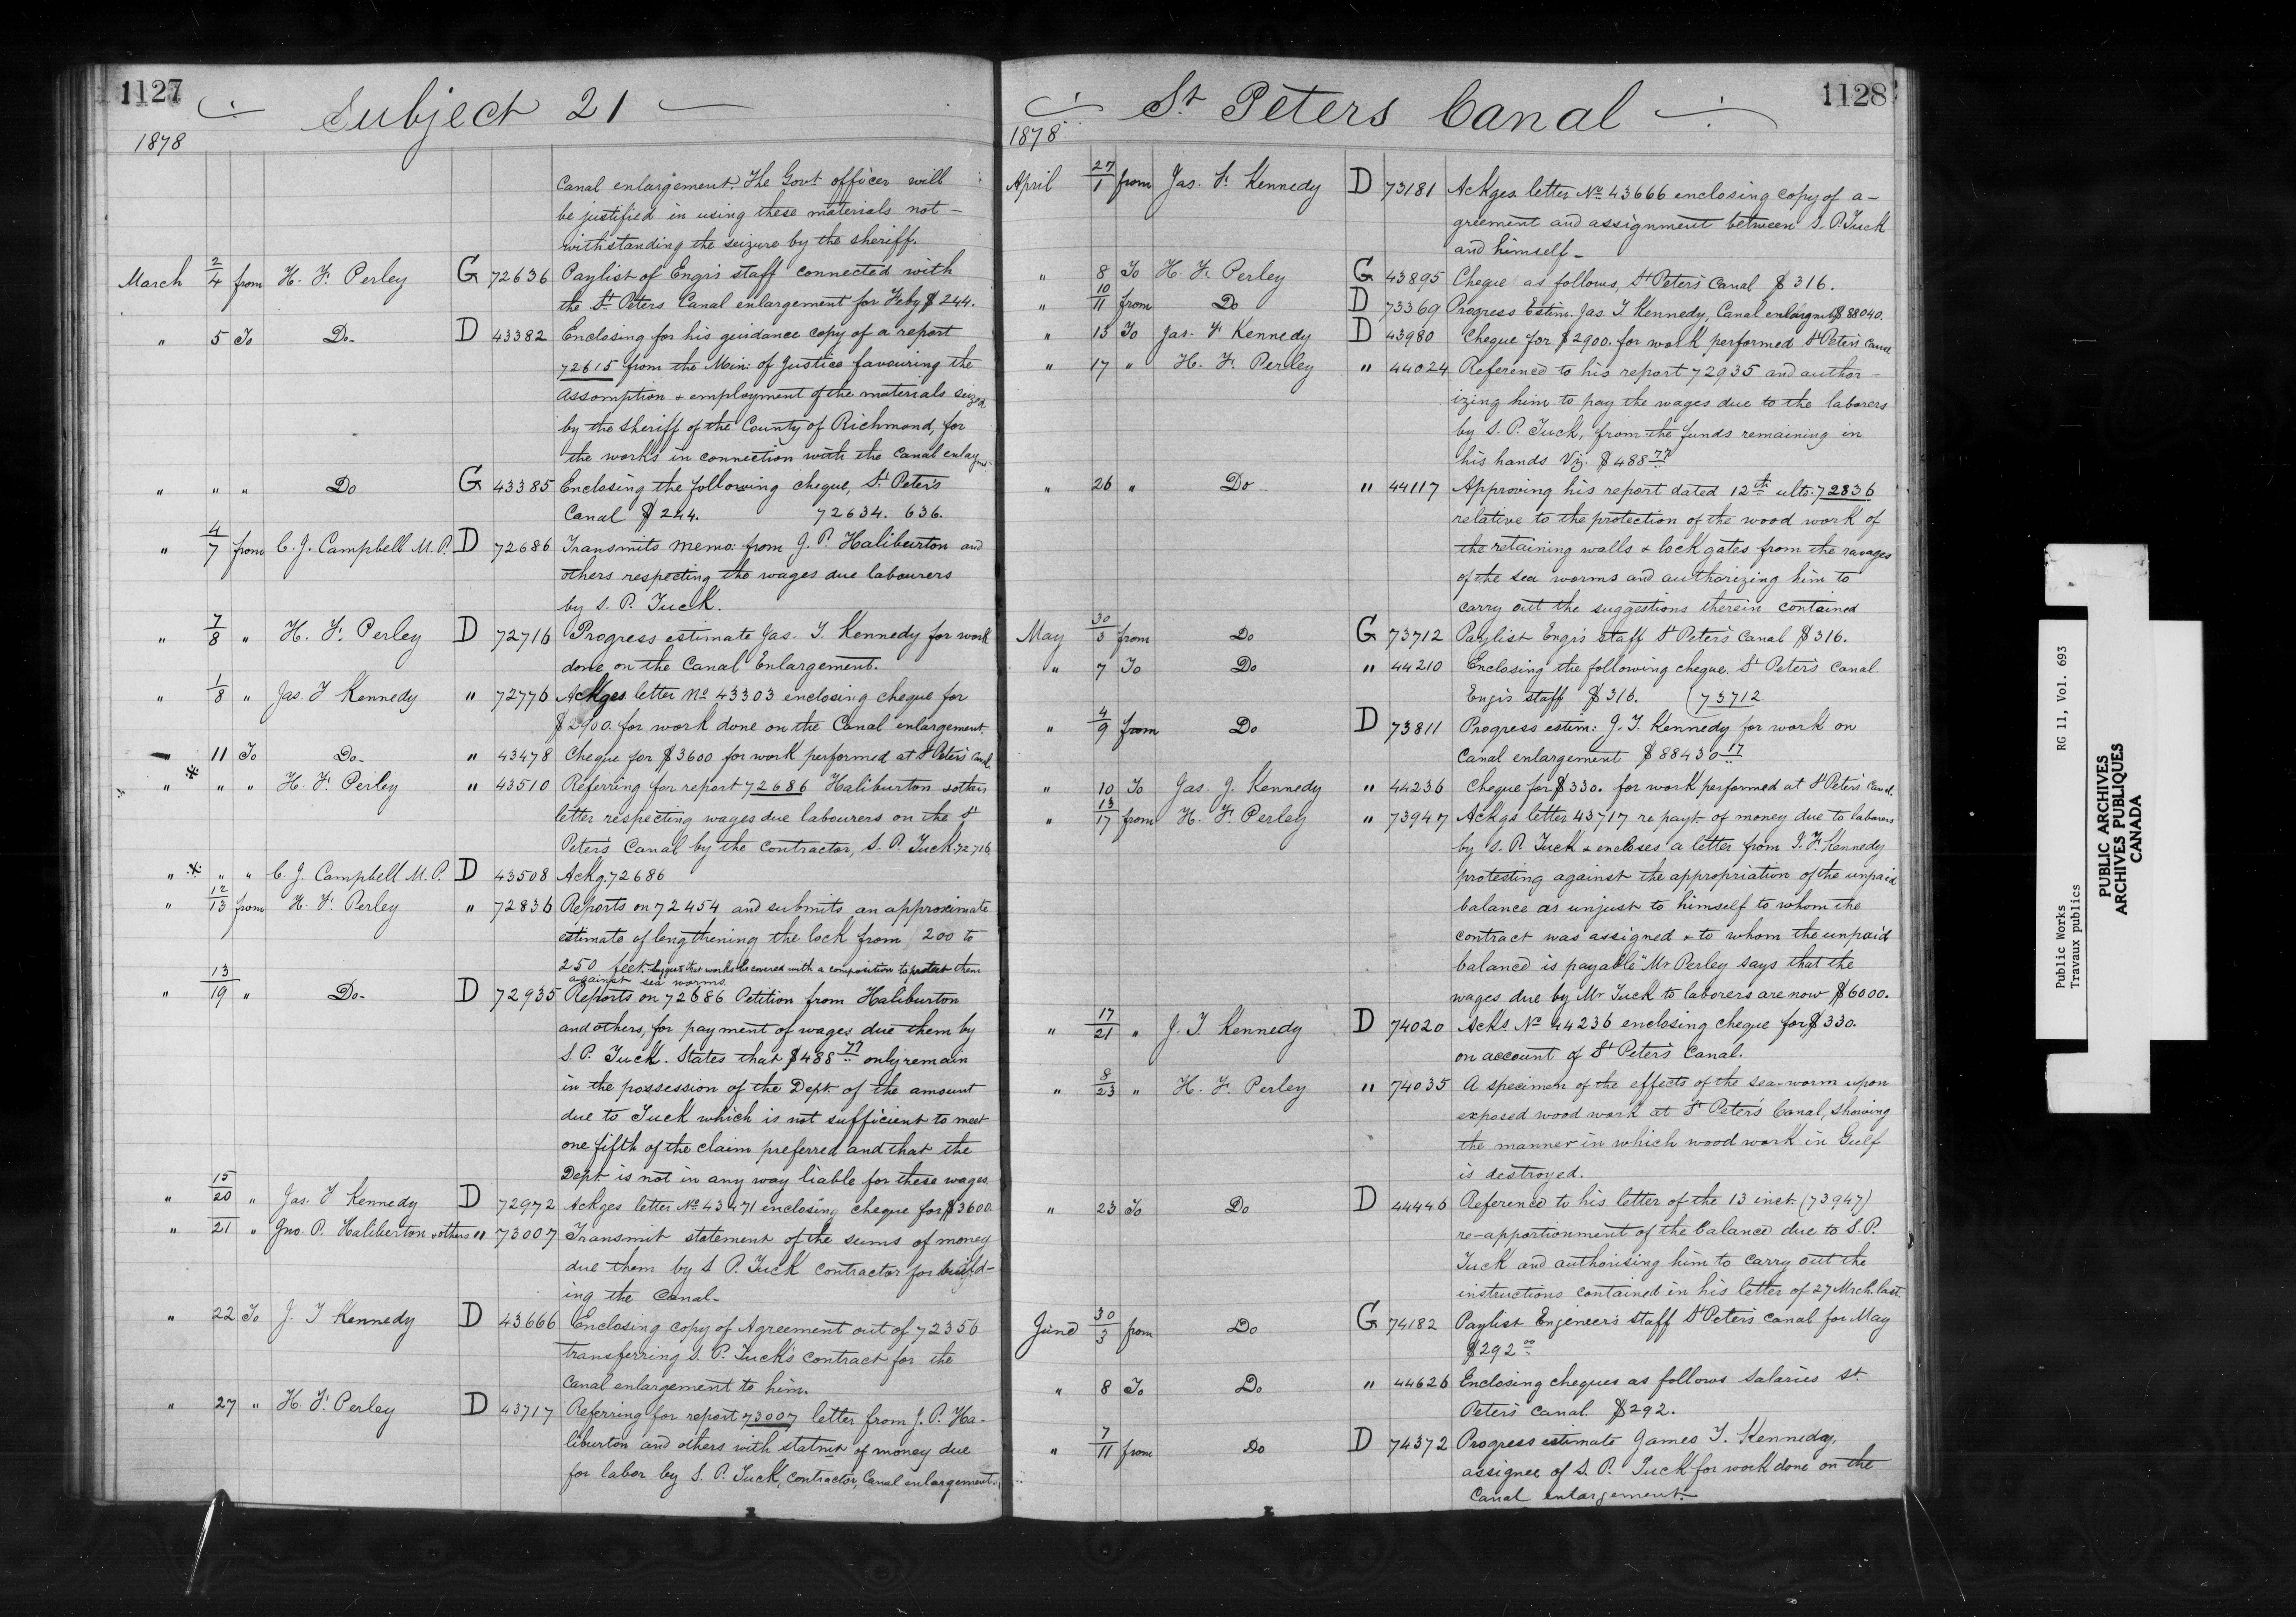 1127
Subject 21
1878
canal enlargement. The Govt officer will
be justified in using these materials not-
withstanding the seizure by the sheriff.
March 2/4 from H. F. Perley G 72636 Paylist of Engrs staff connected with
the St. Peters Canal enlargement for Feby $244.
" 5 To Do- D 43382 Enclosing for his guidance copy of a report
72615 from the Min: of Justice favouring the
assomption & employment of the materials seized
by the sheriff of the County of Richmond, for
the works in connection with the canal enlargmt.
" " " Do G 43385 Enclosing the following cheque, St. Peter's
Canal $244. 72634. 636.
" 4/7 from C. J. Campbell M.P. D 72686 Transmits memo: from J. P. Haliburton and
others respecting the wages due labourers
by S. P. Tuck.
" 7/8 " H. F. Perley D 72716 Progress estimate Jas. T. Kennedy for work
done on the Canal Enlargement.
" 1/8 " Jas. T Kennedy " 72776 Ackges letter No 43303 enclosing cheque for
$2900. for work done on the Canal enlargement.
" 11 To Do- " 43478 Cheque for $3600 for work performed at St Peter's Canl.
" * " " H. F. Perley " 43510 Referring for report 72686 Haliburton & others
letter respecting wages due labourers on the St
Peter's Canal by the contractor, S. P. Tuck. 72716.
" * " " C. J. Campbell M.P. D 43508 Ackg. 72686
" 12/13 from H. F. Perley " 72836 Reports on 72454 and submits an approximate
estimate of lengthening the lock from 200 to
250 feet. Suggest that works be covered with a composition to protect them
against sea worms.
" 13/19 " Do- D 72935 Reports on 72686 Petition from Haliburton
and others, for payment of wages due them by
S. P. Tuck. States that $488.77 only remain
in the possession of the Dept. of the amount
due to Tuck which is not sufficient to meet
one fifth of the claim preferred and that the
Dept. is not in any way liable for these wages.
" 15/20 " Jas. T Kennedy D 72972 Ackges letter No. 43471 enclosing cheque for $3600.
" 21 " Jno. P. Haliberton & others " 73007 Transmit statement of the sums of money
due them by S P. Tuck contractor for build-
ing the Canal-
" 22 To J. T Kennedy D 43666 Enclosing copy of Agreement out of 72356
transferring S. P. Tuck's contract for the
canal enlargement to him.
" 27 " H. F. Perley D 43717 Referring for report 73007 letter from J. P. Ha-
liburton and others with statmt of money due
for labor by S. P. Tuck, contractor, Canal enlargement.
1128
St Peters Canal
1878
April 27/1 from Jas. F. Kennedy D 73181 Ackges letter No 43666 enclosing copy of a-
greement and assignment between S. P. Tuck
and himself-
" 8 To H. F. Perley G 43895 Cheque as follows, St Peter's Canal $316.
" 10/11 from Do D 73369 Progress Estim. Jas. T. Kennedy, Canal enlargmt $88040.
" 13 To Jas. F Kennedy D 43980 Cheque for $2900. for work performed St Peter's Canal
" 17 " H. F. Perley " 44024 Referened to his report 72935 and author-
izing him to pay the wages due to the laborers
by S. P. Tuck, from the funds remaining in
his hands Viz. $488.77
" 26 " Do " 44117 Approving his report dated 12th ulto. 72836
relative to the protection of the wood work of
the retaining walls & lock gates from the ravages
of the sea worms and authorizing him to
carry out the suggestions therein contained
May 30/3 from Do G 73712 Paylist Engrs staff St Peter's Canal $316.
" 7 To Do " 44210 Enclosing the following cheque. St Peter's Canal.
Engrs staff $316. (73712
" 4/9 from Do D 73811 Progress estim: J. T. Kennedy for work on
Canal enlargement $88430.17
" 10 To Jas. J. Kennedy " 44236 Cheque for $330. for work performed at St Peter's Canal.
" 13/17 from H. F. Perley " 73947 Ackgs letter 43717 re payt. of money due to laborers
by S. P. Tuck & encloses a letter from J. F. Kennedy
protesting against the appropriation of the unpaid
balance as unjust to himself to whom the
contract was assigned & to whom the unpaid
balance is payable" Mr Perley says that the
wages due by Mr Tuck to laborers are now $6000.
" 17/21 " J. T. Kennedy D 74020 Acks. No 44236 enclosing cheque for $330.
on account of St Peter's Canal.
" 8/23 " H. F. Perley " 74035 A specimen of the effects of the sea-worm upon
exposed wood work at St Peter's Canal, showing
the manner in which wood work in Gulf
is destroyed.
" 23 To Do D 44446 Reference to his letter of the 13 inst. (73947)
re-apportionment of the balance due to S. P.
Tuck and authorising him to carry out the
instructions contained in his letter of 27 Mrch. last
June 30/3 from Do G 74182 Paylist Engineer's staff St Peter's Canal for May
$292.00
" 8 To Do " 44626 Enclosing cheques as follows Salaries St.
Peter's Canal. $292.
" 7/11 from Do D 74372 Progress estimate James T. Kennedy,
assignee of S. P. Tuck for work done on the
Canal enlargement.
Public Works RG 11, Vol. 693
Travaux publics
PUBLIC ARCHIVES
ARCHIVES PUBLIQUES
CANADA